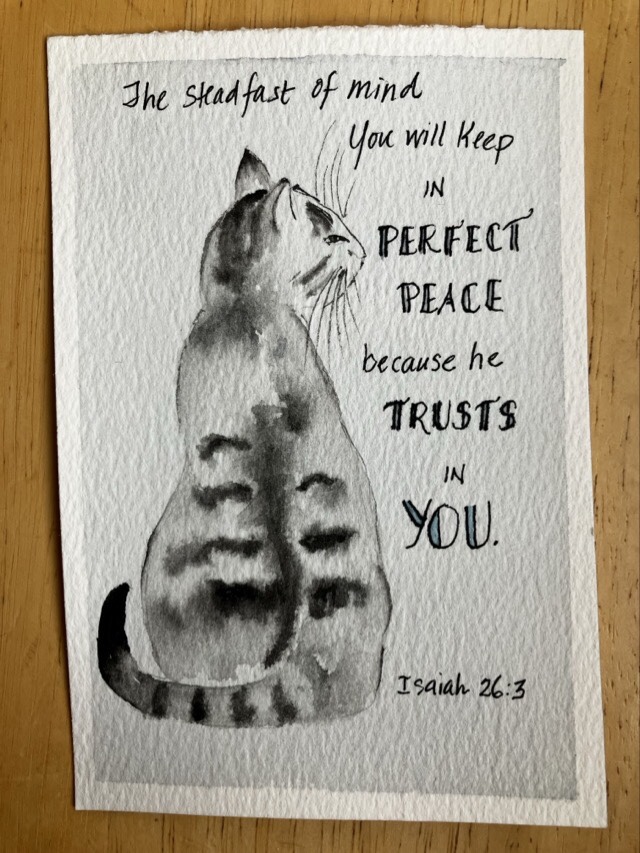 The steadfast of mind
You will Keep
IN
PERFECT
PEACE
because he
TRUSTS
IN
YOU.
Isaiah 26:3